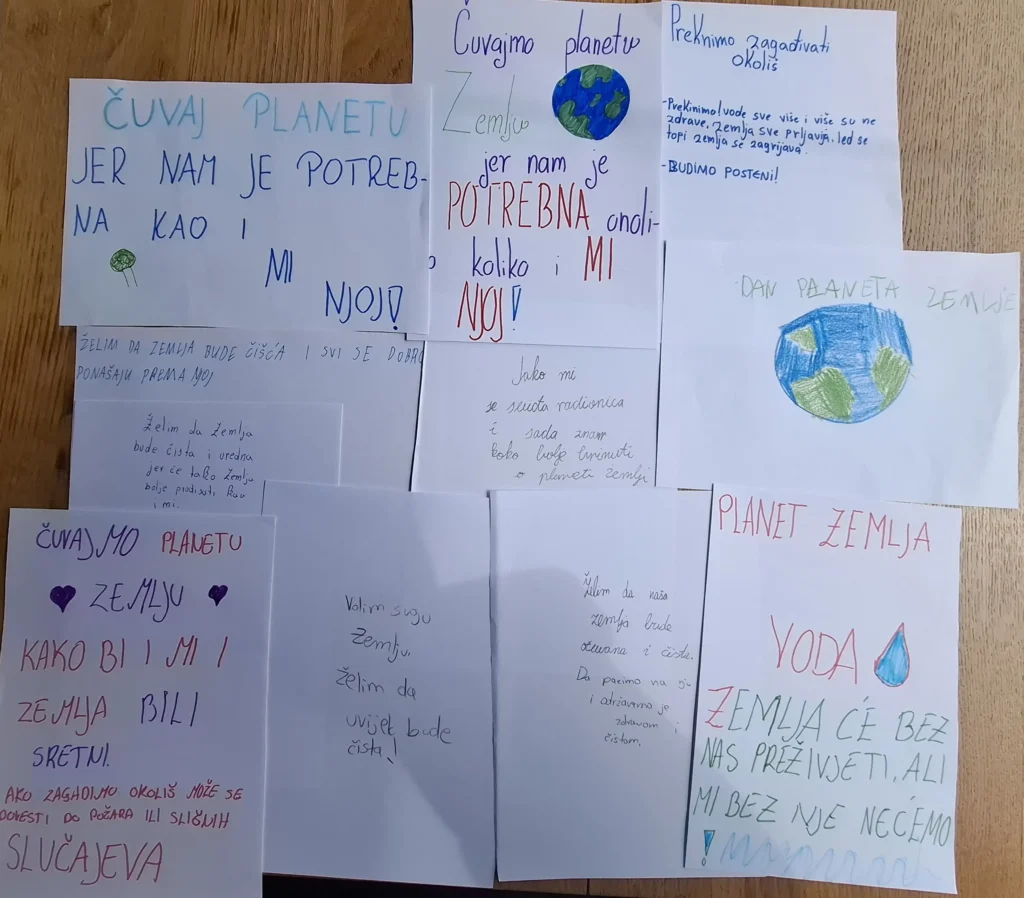 ČUVAJ PLANETU
JER NAM JE POTREB-
NA KAO I
MI
NJOJ!
Čuvajmo planetu
Zemlju
jer nam je
POTREBNA onoli-
o koliko i MI
NJOJ!
Preknimo zagađivati
okoliš
-Prekinimo! vode sve više i više su ne
zdrave, zemlja sve prljavija, led se
topi zemlja se zagrijava.
-BUDIMO POSTENI!
DAN PLANETA ZEMLJE
ŽELIM DA ZEMLJA BUDE ČIŠĆA I SVI SE DOBRO
PONAŠAJU PREMA NJOJ
Želim da Zemlja
bude čista i uredna
jer će tako Zemlja
bolje
i mi.
Jako mi
se sviđa radionica
i sada znam
kako bolje brinuti
o planeti zemlji
ČUVAJMO PLANETU
ZEMLJU
KAKO BI I MI I
ZEMLJA BILI
SRETNI.
AKO ZAGADIMO OKOLIŠ MOŽE SE
DOVESTI DO POŽARA ILI SLIČNIH
SLUČAJEVA
Volim svoju
Zemlju,
želim da
uvijek bude
čista!
Želim da naša
zemlja bude
očuvana i čista.
Da pazimo na
i održavamo je
zdravom i
čistom.
PLANET ZEMLJA
VODA
ZEMLJA ĆE BEZ
NAS PREŽIVJETI, ALI
MI BEZ NJE NEĆEMO
!